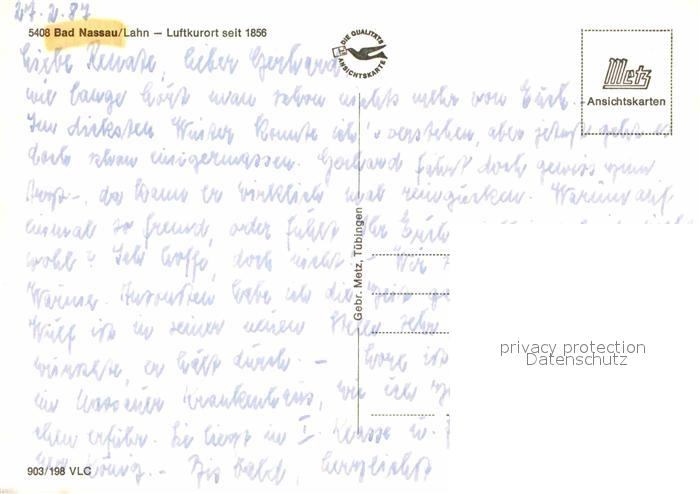 27.2.87
5408 Bad Nassau/Lahn – Luftkurort seit 1856
DIE QUALITÄTS ANSICHTSKARTE
Metz
Ansichtskarten
Liebe Renate, lieber Gerhard
wie lange hört man schon nichts mehr von Euch.
Im dicksten Winter konnte ich's verstehen, aber jetzt geht es
doch schon einigermassen. Gerhard fährt doch gewiss zum
da kann er wirklich mal reingucken. Warum auf
einmal so fremd, oder fühlt Ihr Euch
wohl? Ich hoffe, doch nicht – Wir
Wärme. Ansonsten habe ich die
Wulf ist in seiner neuen sehr
er hält durch. –
im Nassauer Krankenhaus, wie ich
erfuhr. Sie liegt in I. Klasse
König. – Bis bald, herzlichst
Gebr. Metz, Tübingen
privacy protection
Datenschutz
903/198 VLC